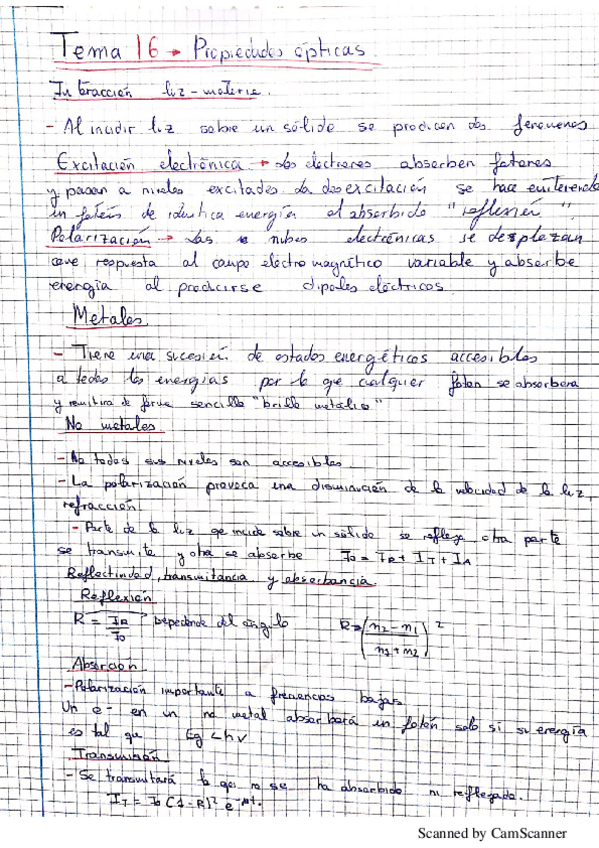 Tema 16 → Propiedades ópticas.
Interacción luz-materia.
- Al incidir luz sobre un sólido se producen dos fenómenos
Excitación electrónica → Los electrones absorben fotones
y pasan a niveles excitados. La desexcitación se hace emitiendo
un fotón de idéntica energía al absorbido "reflexión".
Polarización → Las nubes electrónicas se desplazan
como respuesta al campo electromagnético variable y absorbe
energía al producirse dipolos eléctricos
Metales
- Tiene una sucesión de estados energéticos accesibles
a todas las energías por lo que cualquier fotón se absorberá
y remitirá de forma sencilla "brillo metálico"
No metales
- No todos sus niveles son accesibles
- La polarización provoca una disminución de la velocidad de la luz,
refracción
- Parte de la luz que incide sobre un sólido se refleja otra parte
se transmite y otra se absorbe I0 = IR + IT + IA
Reflectividad, transmitancia y absorbancia.
Reflexión
R = IR/I0 Depende del ángulo R = ((n2 - n1)/(n1 + n2))²
Absorción
- Polarización importante a frecuencias bajas
Un e- en un no metal absorberá un fotón solo si su energía
es tal que Eg < hν
Transmisión
- Se transmitirá lo que no se ha absorbido ni reflejado.
IT = I0 (1 - R)² e^-μl.
Scanned by CamScanner